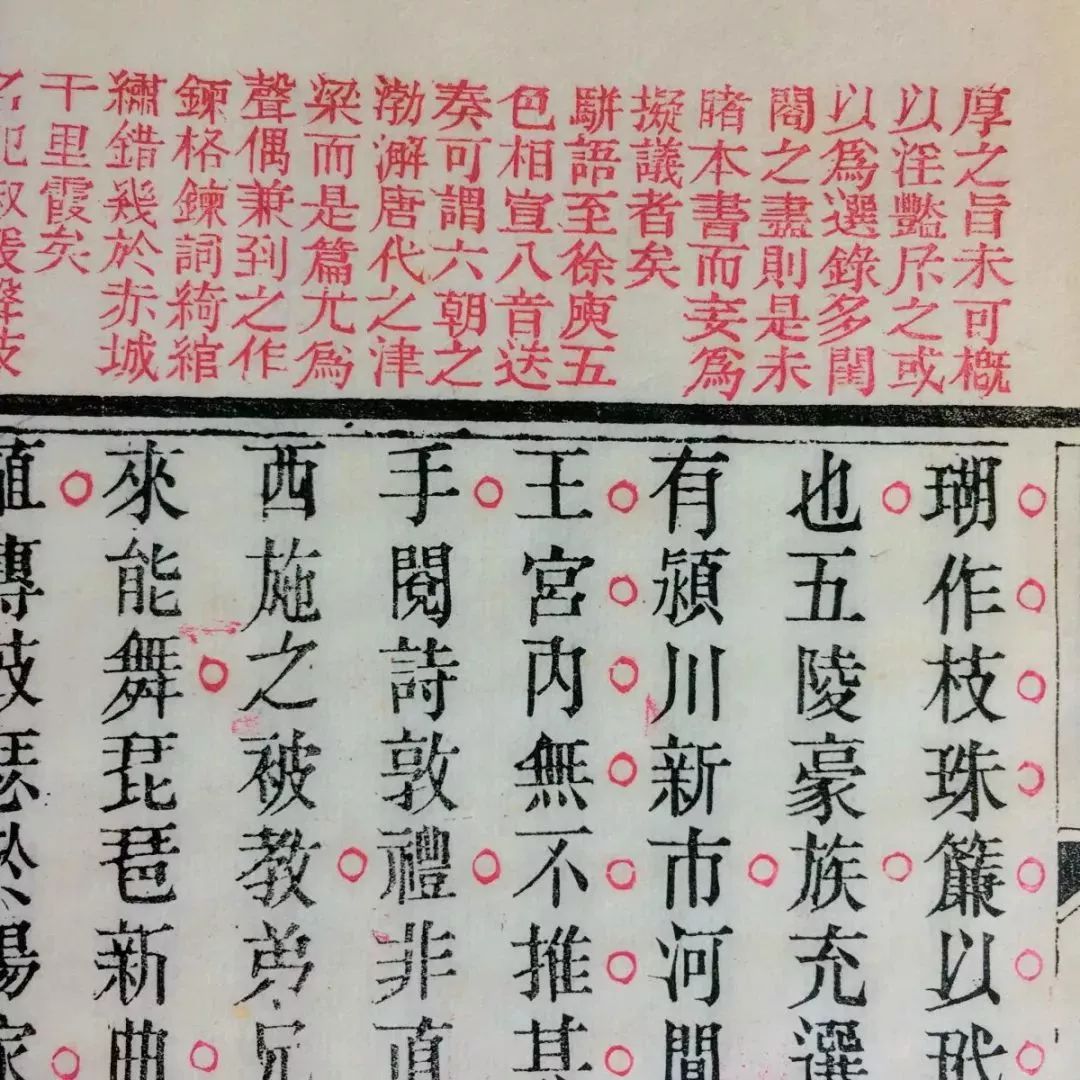 厚之旨未可概
以淫豔斥之或
以爲選錄多閨
閣之盡則是未
睹本書而妄爲
擬議者矣
駢語至徐庾五
色相宣八音迭
奏可謂六朝之
渤澥唐代之津
梁而是篇尤爲
聲偶兼到之作
鍊格鍊詞綺綰
繡錯幾於赤城
千里霞矣
瑚作枝珠簾以玳
也五陵豪族充選
有潁川新市河間
王宮內無不推其
手閱詩敦禮非直
西施之被教弟兄
來能舞琵琶新曲